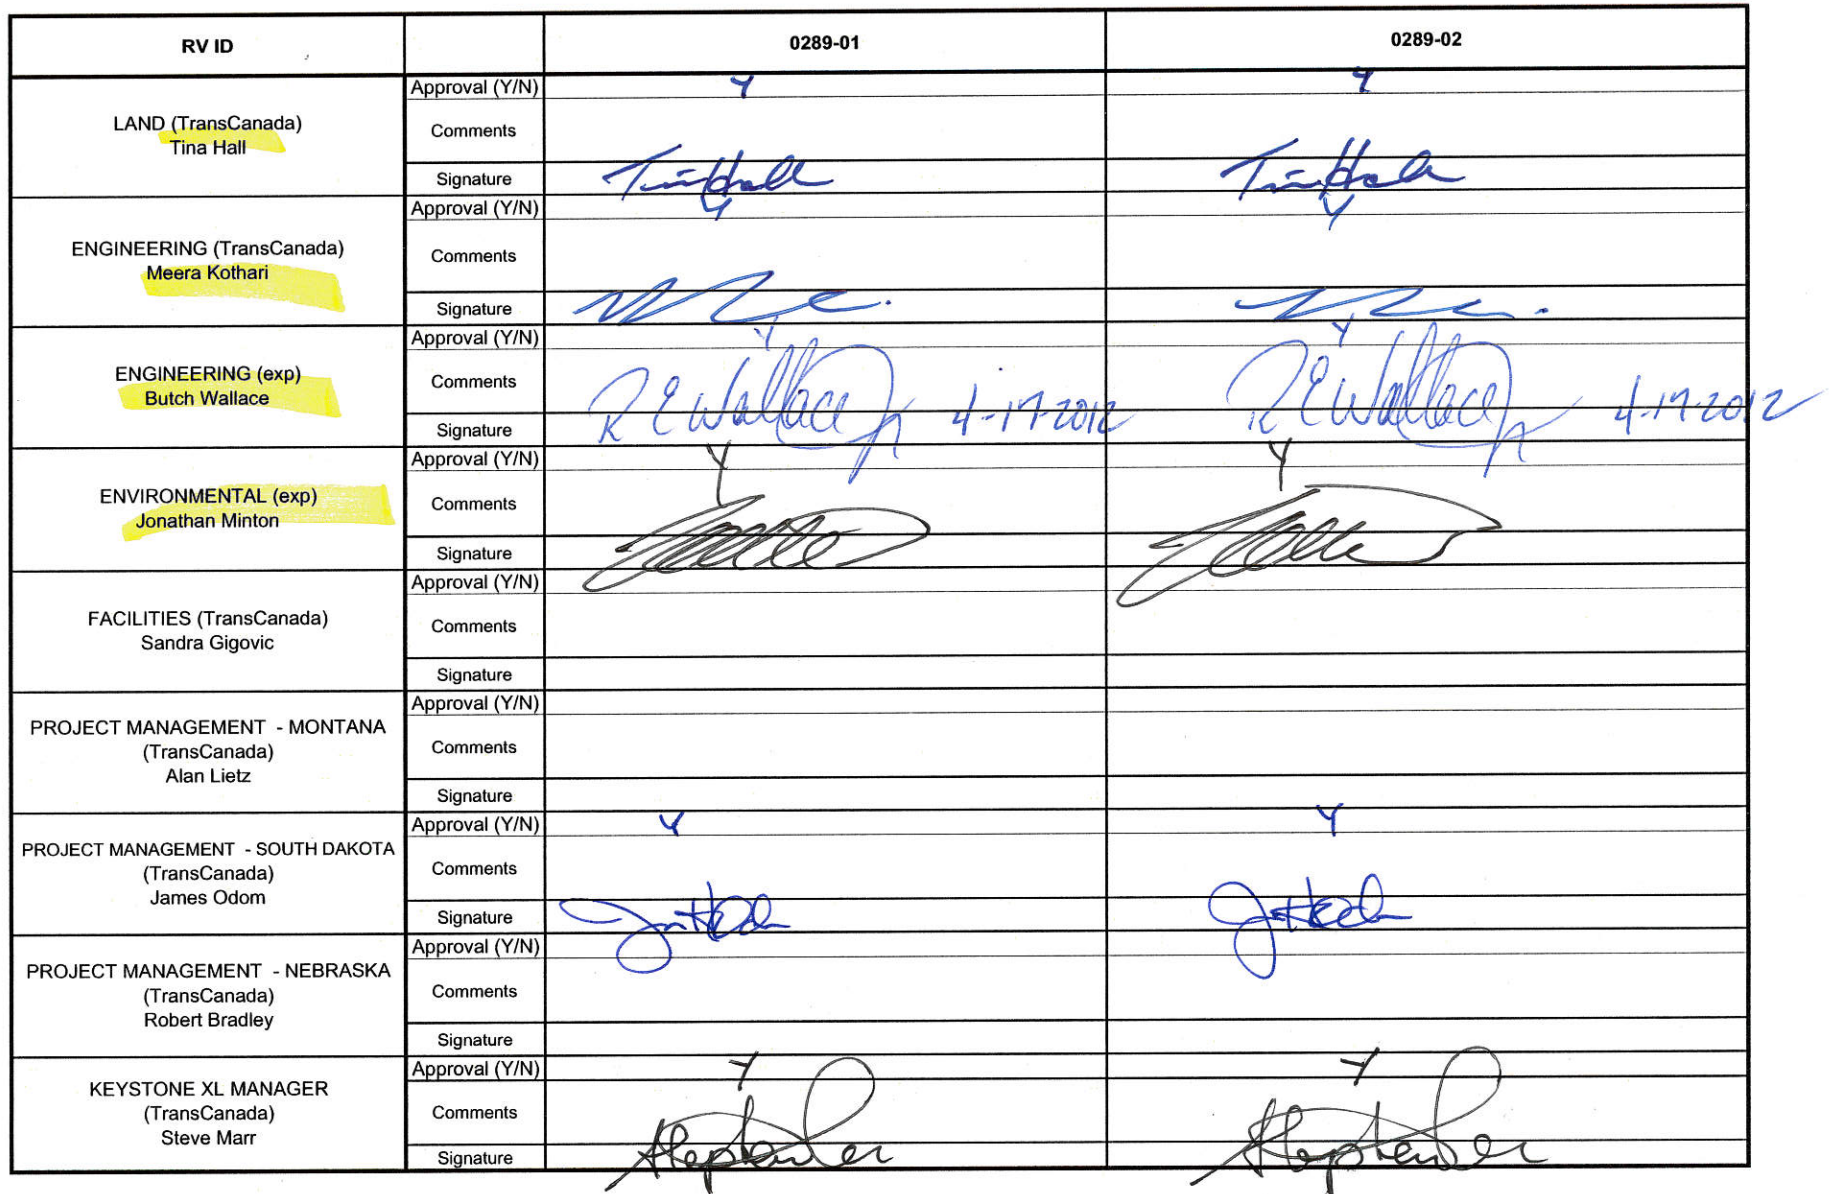 RV ID 0289-01 0289-02
LAND (TransCanada)
Tina Hall
Approval (Y/N) Y Y
Comments
Signature Tina Hall Tina Hall
ENGINEERING (TransCanada)
Meera Kothari
Approval (Y/N) Y Y
Comments
Signature
ENGINEERING (exp)
Butch Wallace
Approval (Y/N) Y Y
Comments
Signature R E Wallace Jr 4-17-2012 R E Wallace Jr 4-17-2012
ENVIRONMENTAL (exp)
Jonathan Minton
Approval (Y/N) Y Y
Comments
Signature
FACILITIES (TransCanada)
Sandra Gigovic
Approval (Y/N)
Comments
Signature
PROJECT MANAGEMENT - MONTANA
(TransCanada)
Alan Lietz
Approval (Y/N)
Comments
Signature
PROJECT MANAGEMENT - SOUTH DAKOTA
(TransCanada)
James Odom
Approval (Y/N) Y Y
Comments
Signature
PROJECT MANAGEMENT - NEBRASKA
(TransCanada)
Robert Bradley
Approval (Y/N)
Comments
Signature
KEYSTONE XL MANAGER
(TransCanada)
Steve Marr
Approval (Y/N) Y Y
Comments
Signature